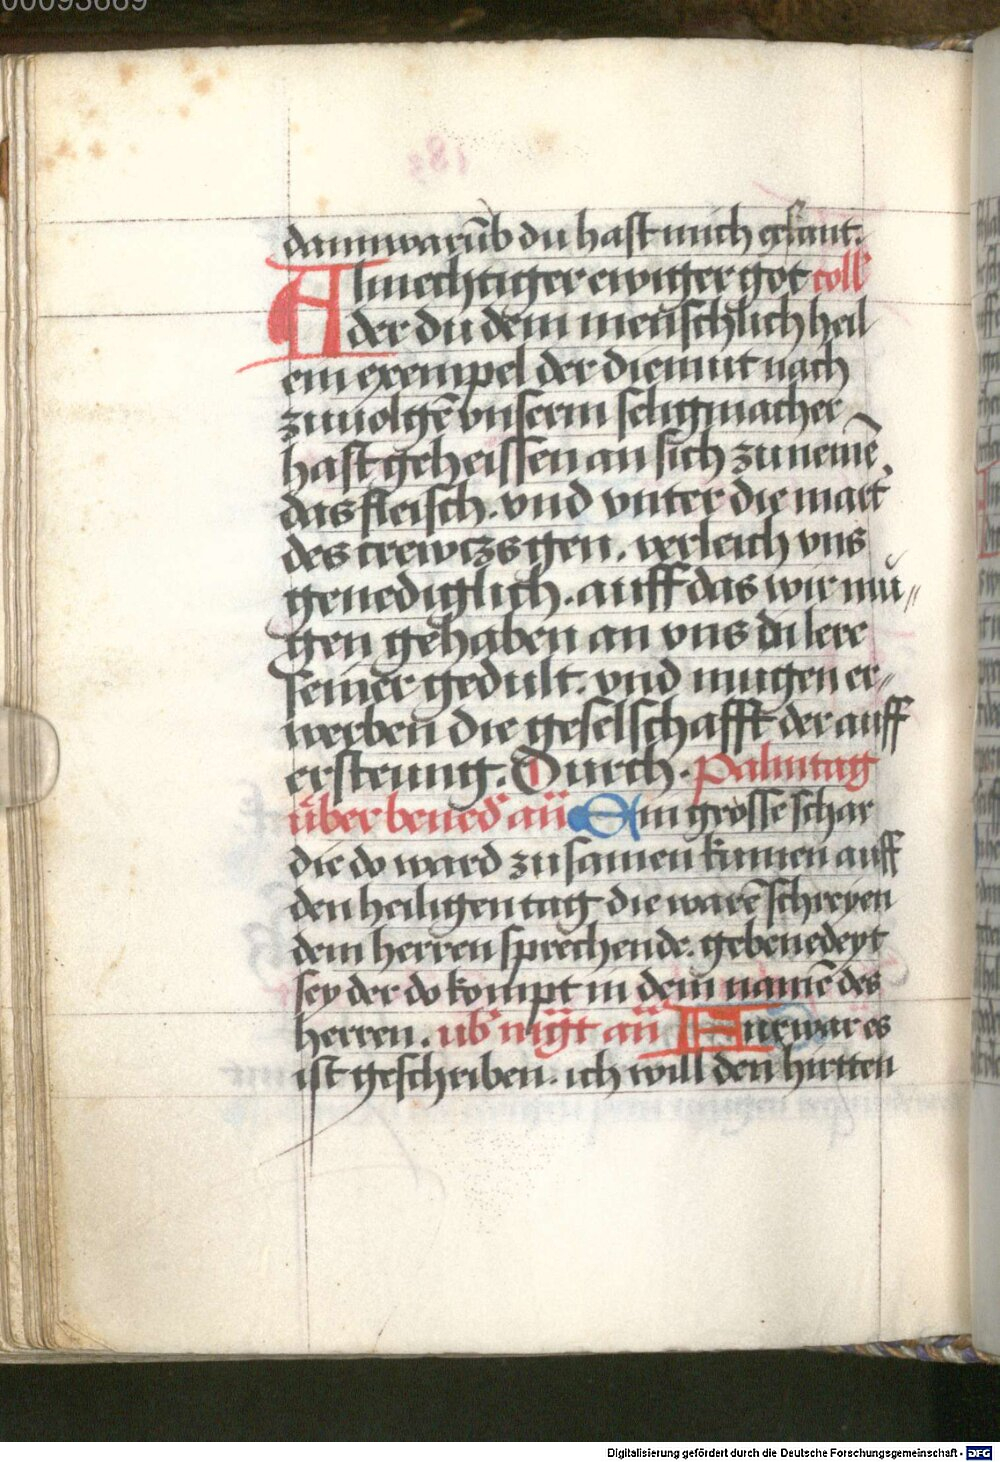 00093669
dannwarūb du hast mich erkant.
Almechtiger ewiger got coll'
der du dem menschlich heil
ein exempel der diemut nach
zuuolgē vnserm seligmacher
hast geheissen an sich zu nemē
das fleisch. vnd vnter die mart'
des crewczs gen. verleich vns
genediglich. auff das wir mu⸗
gen gehaben an vns di lere
seiner gedult. vnd mugen er⸗
werben die geselschafft der auff
ersteung. Durch. Palmtag
über bened' añ Ein grosse schar
die do ward zu samen kumen auff
den heiligen tag die warē schreyen
dem herren sprechende. gebenedeyt
sey der do kompt in dem namē des
herren. ub' mgt añ Furwar es
ist geschriben. ich will den hirtten
Digitalisierung gefördert durch die Deutsche Forschungsgemeinschaft - DFG